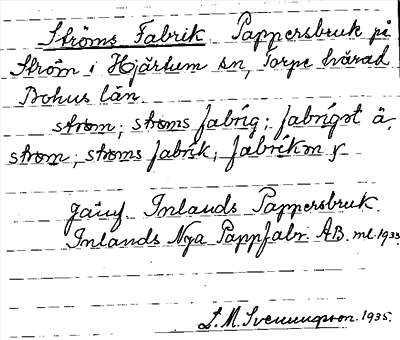 Ströms Fabrik. Pappersbruk på
Ström i Hjärtum sn, Torpe härad
Bohus län.
strøm; strøms fabrig; fabrigat ä.
strøm; strøms fabrik; fabrikən y
Jämf Inlands Pappersbruk.
Inlands Nya Pappfabr. AB. ml. 1933
S. M. Svenungsson. 1935.